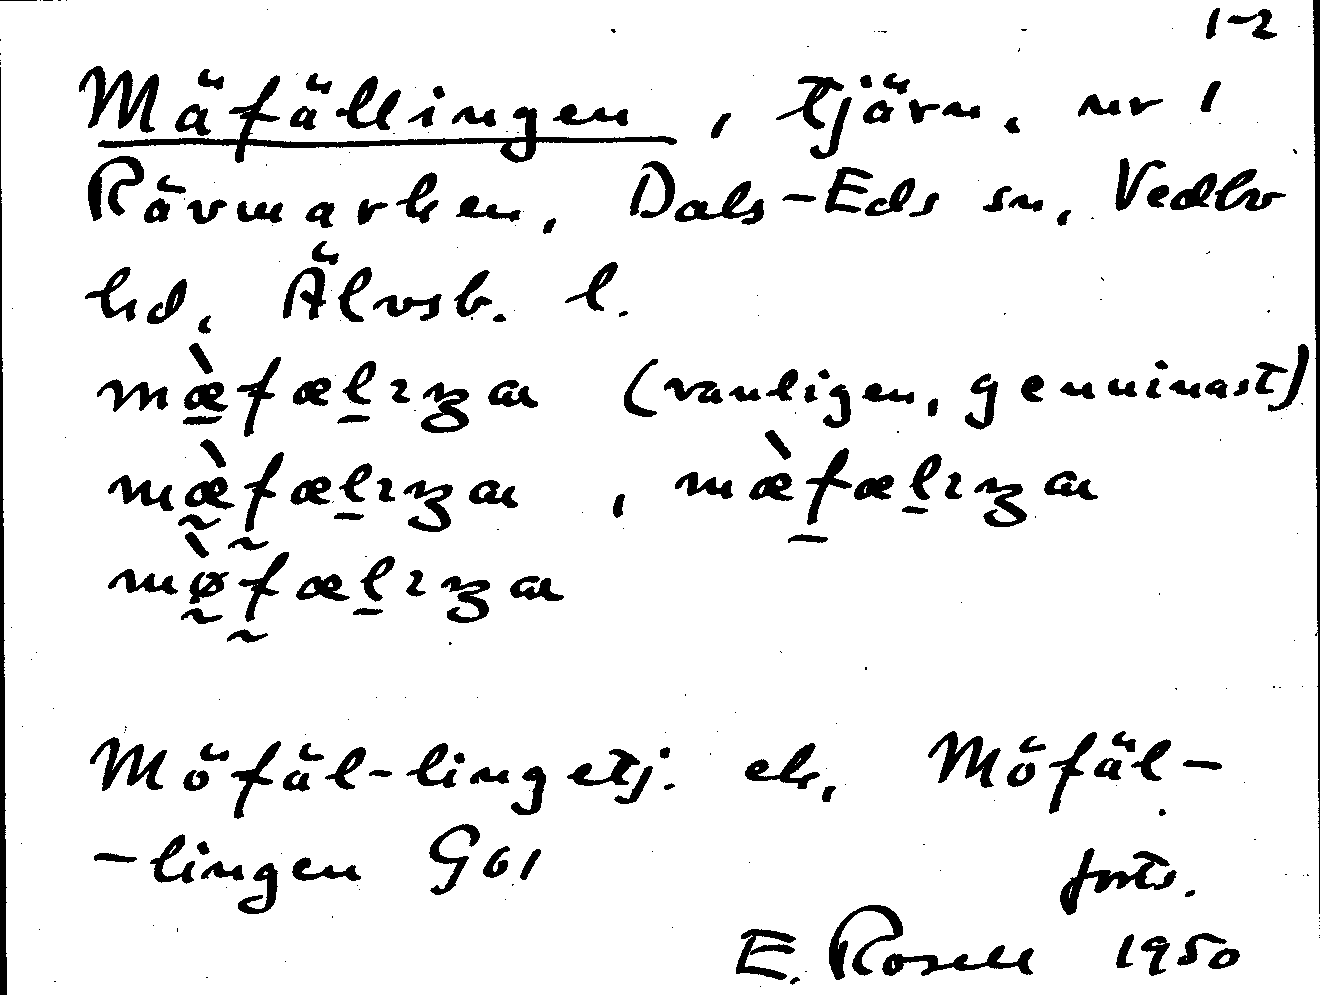 1-2
Mäfällingen, tjärn, nr 1
Rävmarken, Dals-Eds sn, Vedbo
hd, Älvsb. l.
mæ̱̀fæl̠ɪŋa (vanligen, genuinast)
mæ̰̀f̰æl̠ɪŋa, mæ̀f̠æl̠ɪŋa
mø̰̀f̰æl̠ɪŋa
Möfäl-lingetj. ek, Möfäl-
-lingen G61
forts.
E. Rosell 1950